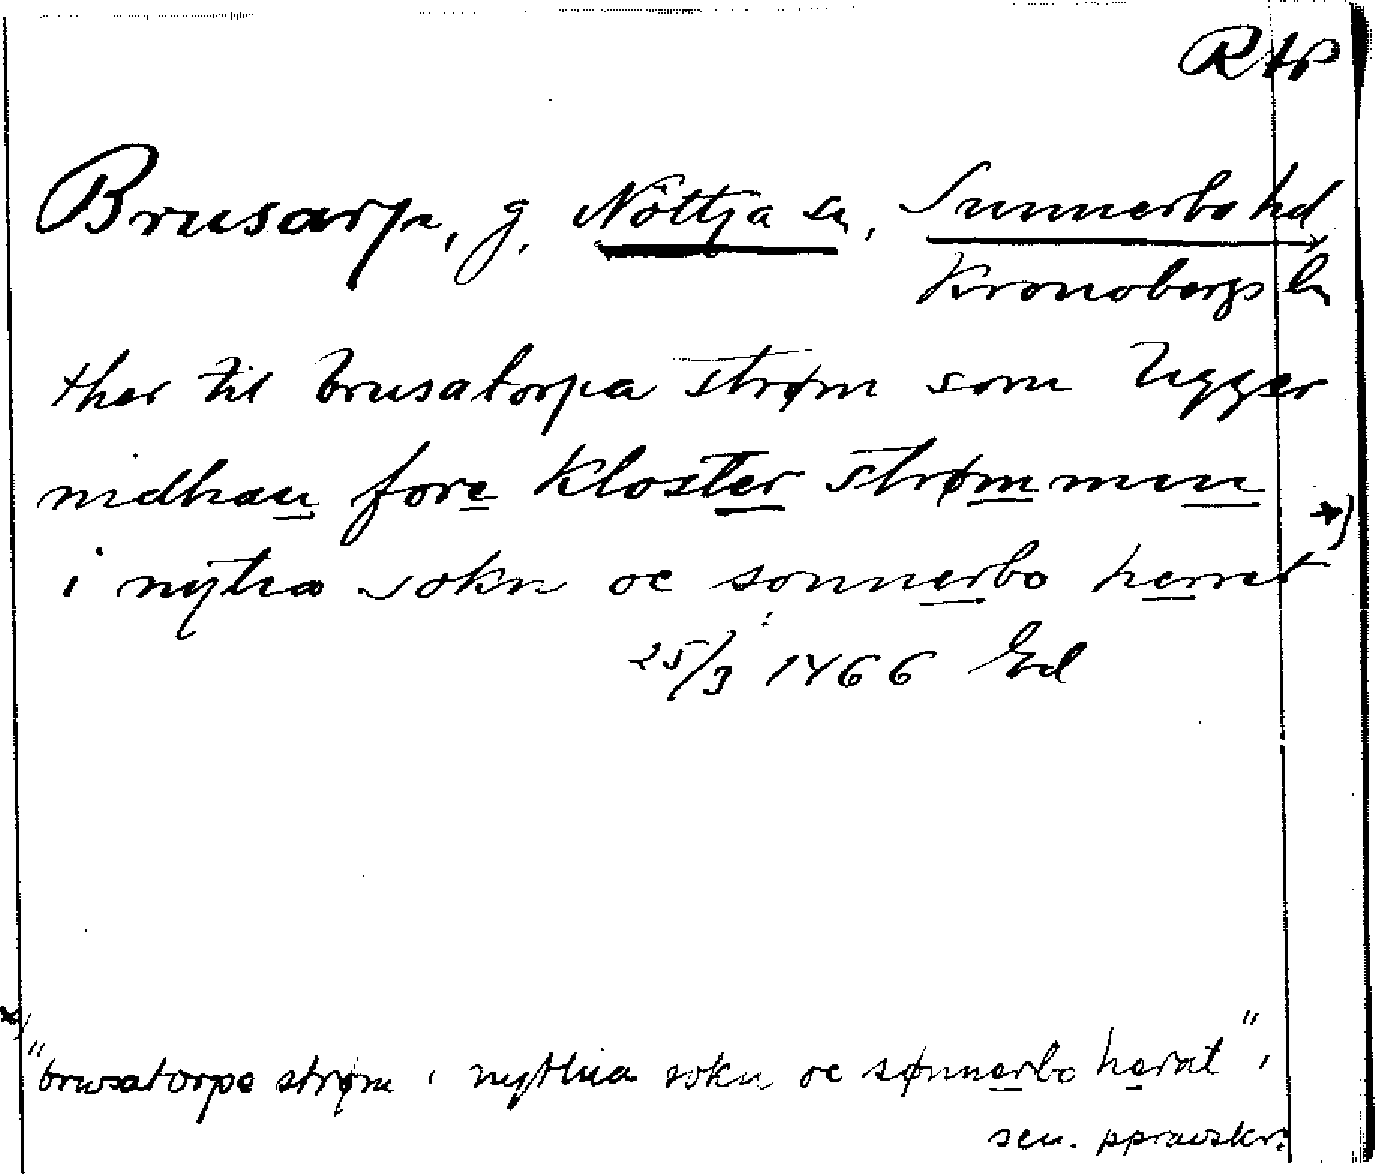 RAp
Brusarp, g. Nöttja sn, Sunnerbo hd
Kronobergs ln
ther til brusatorpa strøm som ligger
nidhan fore Kloster strømmen *)
i nytia sokn oc sønnerbo herret
25/3 1466 Ed
*)
"brusatorpa strøm i nytthia sokn oc sønnerbo herat",
sen. ppravskr.